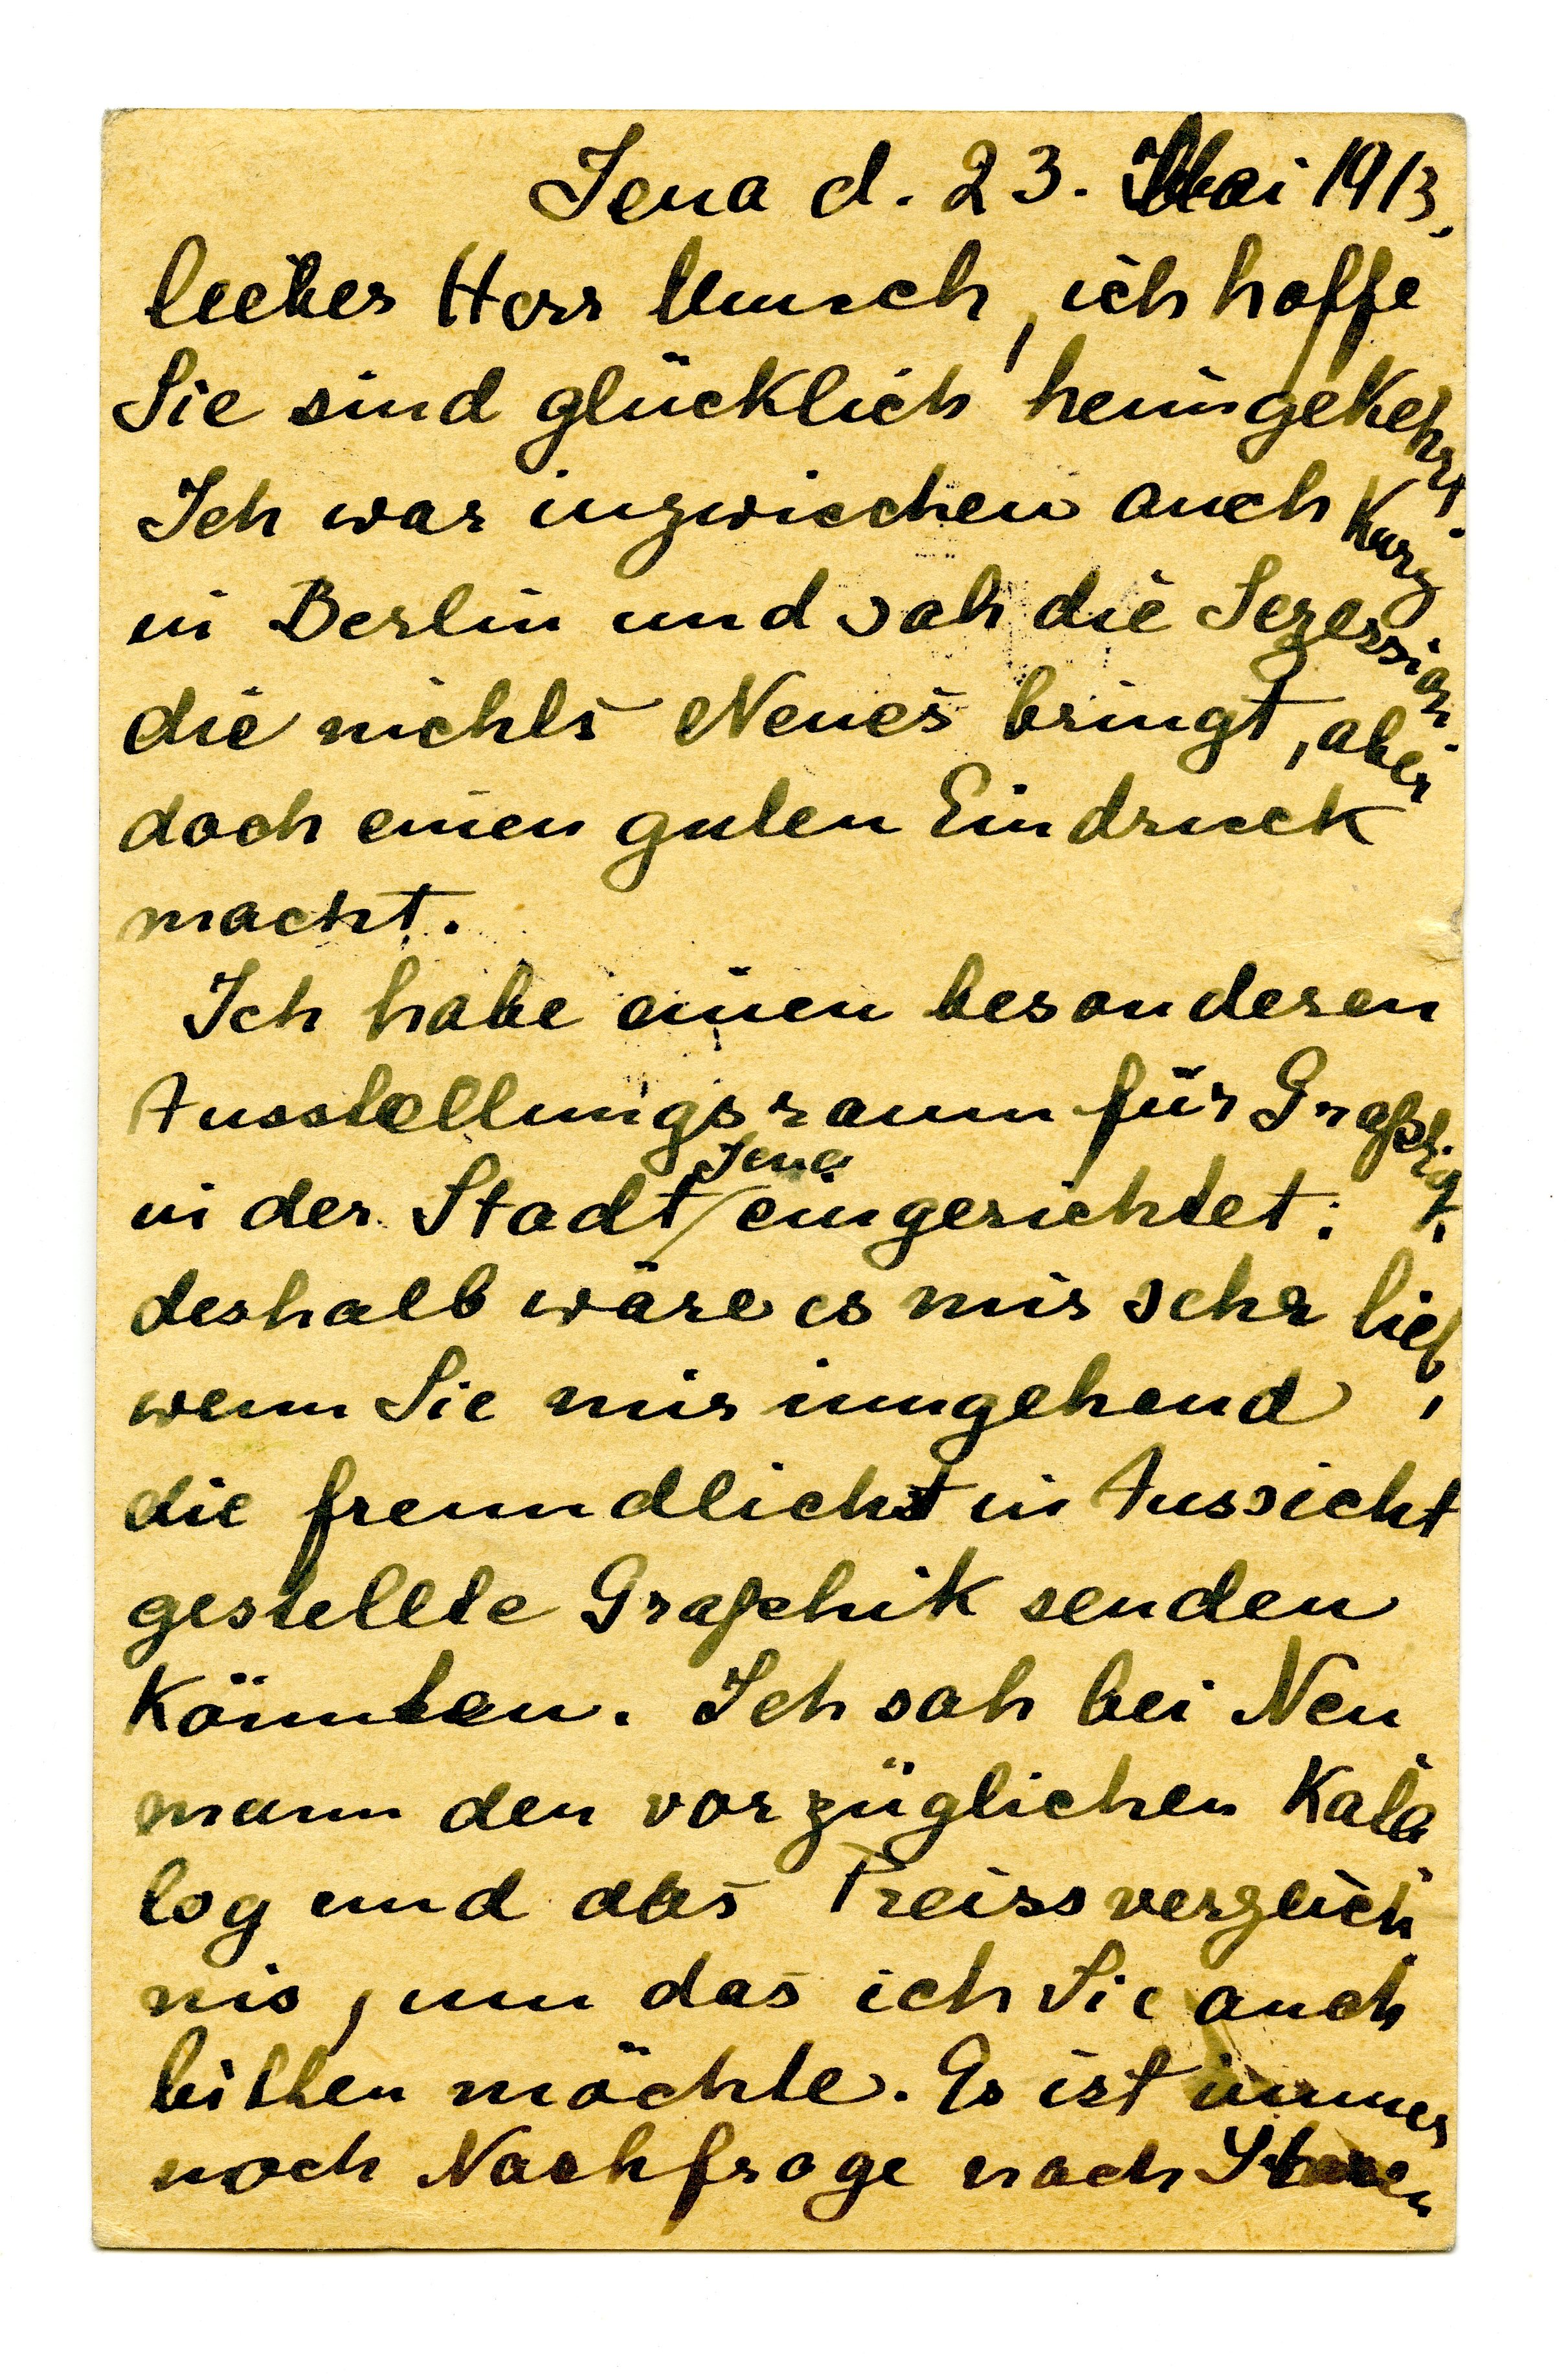 Jena d. 23. Mai 1913,
lieber Herr Munch, ich hoffe
Sie sind glücklich heimgekehrt.
Ich war inzwischen auch kurz
in Berlin und sah die Sezession.
die nichts Neues bringt, aber
doch einen guten Eindruck
macht.
Ich habe einen besonderen
Ausstellungsraum für Graphik
in der Stadt Jena eingerichtet:
deshalb wäre es mir sehr lieb,
wenn Sie mir umgehend
die freundlichst in Aussicht
gestellte Graphik senden
könnten. Ich sah bei Neu
mann den vorzüglichen Kata
log und das Preissverzeich
nis, um das ich Sie auch
bitten möchte. Es ist immer
noch Nachfrage nach Ihren